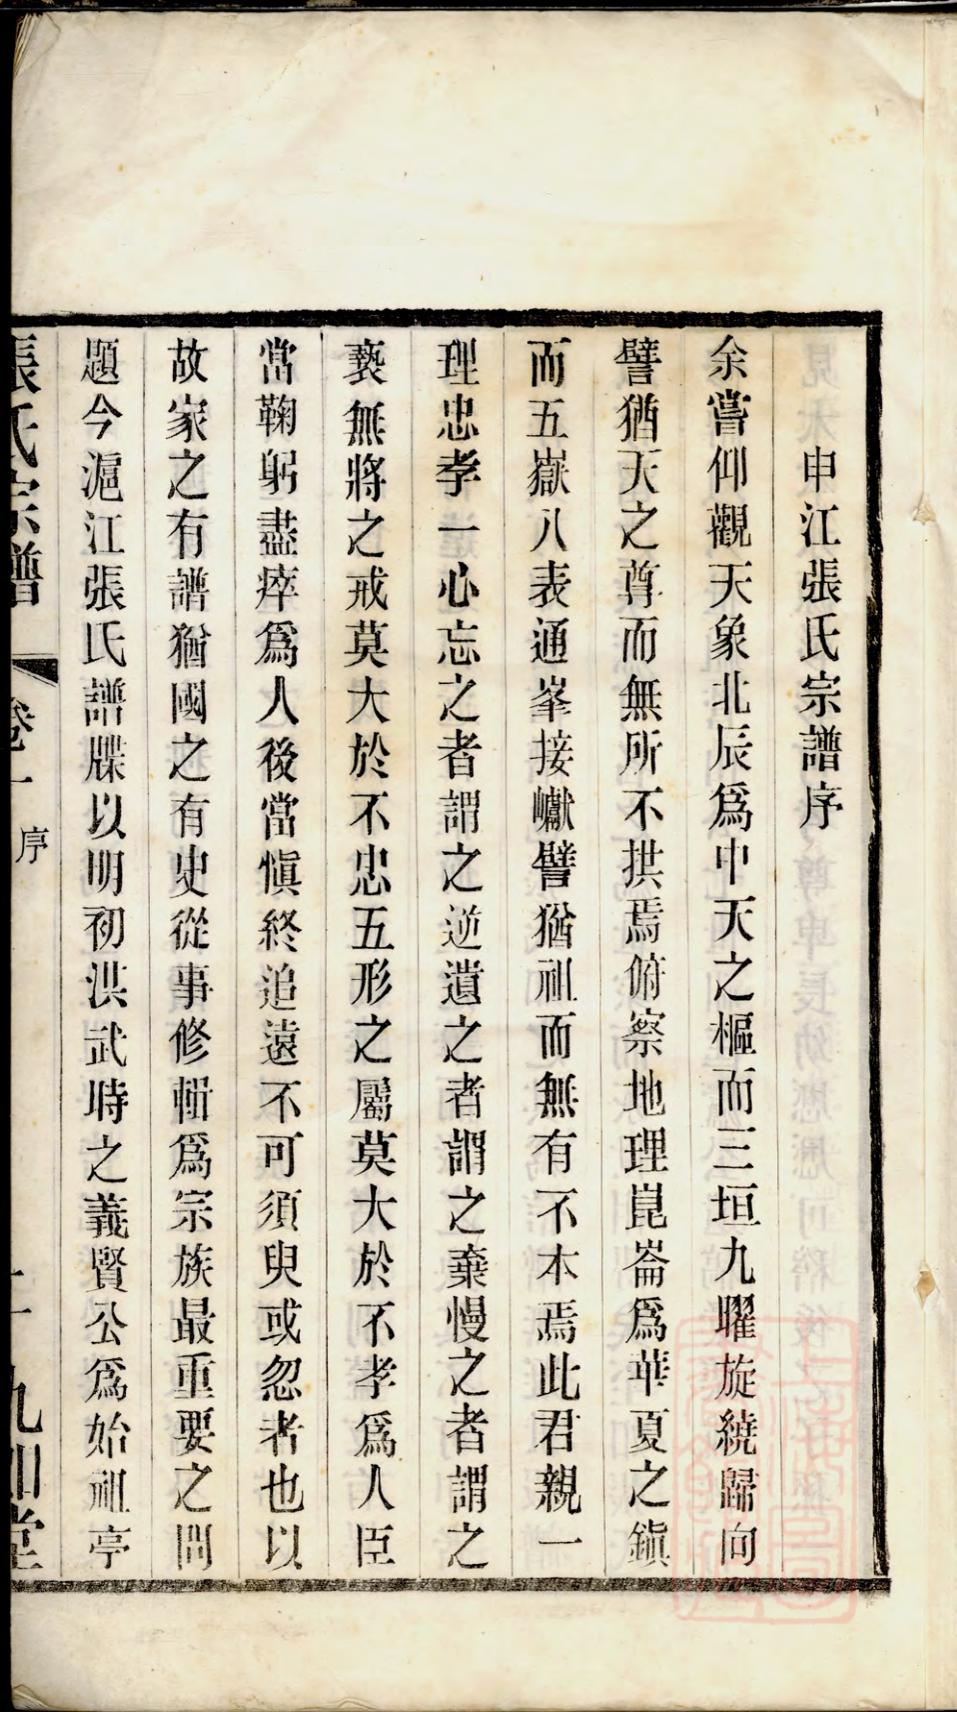 申江張氏宗譜序
余嘗仰觀天象北辰爲中天之樞而三垣九曜旋繞歸向
譬猶天之尊而無所不拱焉俯察地理崑崙爲華夏之鎮
而五嶽八表通峯接巘譬猶祖而無有不本焉此君親一
理忠孝一心忘之者謂之逆遺之者謂之棄慢之者謂之
褻無將之戒莫大於不忠五形之屬莫大於不孝爲人臣
當鞠躬盡瘁爲人後當愼終追遠不可須臾或忽者也以
故家之有譜猶國之有史從事修輯爲宗族最重要之問
題今滬江張氏譜牒以明初洪武時之義賢公爲始祖亭
張氏宗譜 卷一 序 九如堂